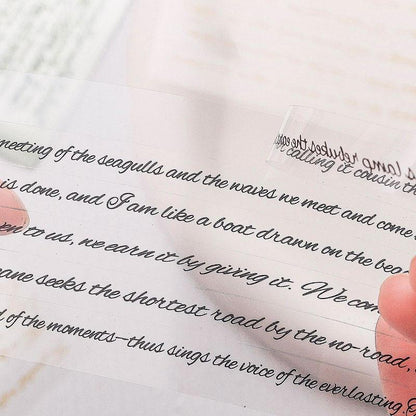 s lamp rebukes the
calling it cousin
meeting of the seagulls and the waves we meet and come
is done, and I am like a boat drawn on the
to us, we earn it by giving it. We
seeks the shortest road by the no-road,
of the moments—thus sings the voice of the everlasting